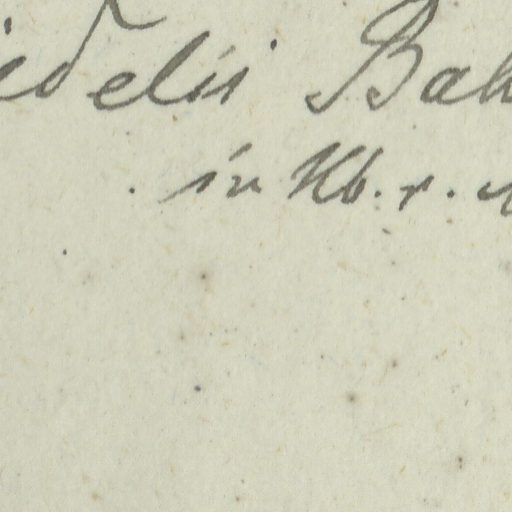 idelis Bak
in Kb. r.